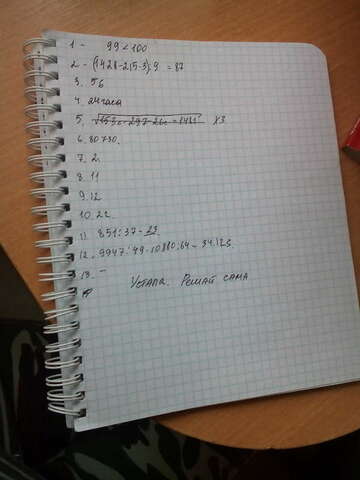 1 - 99 < 100
2 - (1428-215·3):9 = 87
3. 56
4. 24часа
5. ХЗ
6. 80730.
7. 2.
8. 11
9. 12
10. 22.
11. 851:37 = 23
12. 9947:49-10880:64 =
13. -
Устала. Решай сама